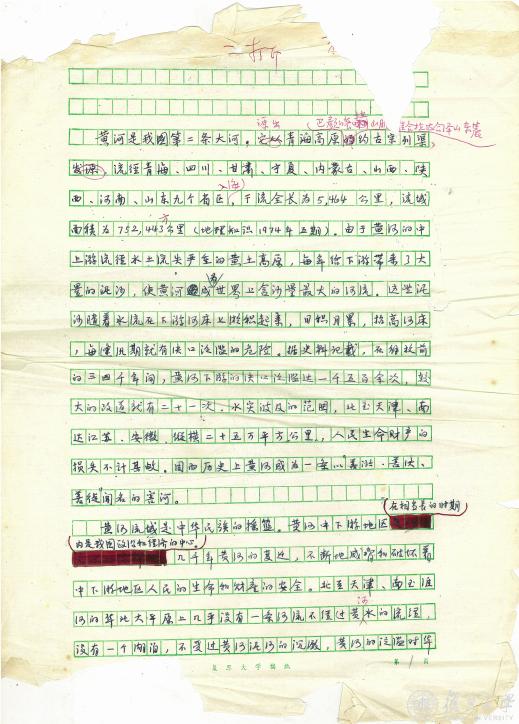 二 打 斤
源出（巴颜喀喇山脉
黄河是我国第二条大河。它从青海高原的约古宗列渠
发源，流经青海、四川、甘肃、宁夏、内蒙古、山西、陕
入海
西、河南、山东九个省区，干流全长为5,464公里，流域
方
面积为752,443公里（地理知识1974年五期）。由于黄河的中
上游流经水土流失严重的黄土高原，每年给下游带来了大
量的泥沙，使黄河成世界上含沙量最大的河流。这些泥
沙随着水流在下游河床上淤积起来，日积月累，抬高河床
，每逢汛期就有决口泛滥的危险。据史料记载，在解放前
的三四千年间，黄河下游的决口泛滥达一千五百余次，较
大的改道就有二十一次。水灾波及的范围，北至天津、南
达江苏、安徽，纵横二十五万平方公里，人民生命财产的
损失不计其数。因而历史上黄河成为一条以“善淤、善决、
善徙”闻名的害河。
在相当长的时期
黄河流域是中华民族的摇篮。黄河中下游地区
内是我国政治和经济的中心。
几千年黄河的变迁，不断地威胁和破坏着
中下游地区人民的生命和财产的安全。北至天津、南至淮
河的华北大平原上几乎没有一条河流不经过黄水的流经，
河
没有一个湖泊，不受过黄河泥沙的沉澱，黄河的泛滥对华
复旦大学稿纸
第 1 页